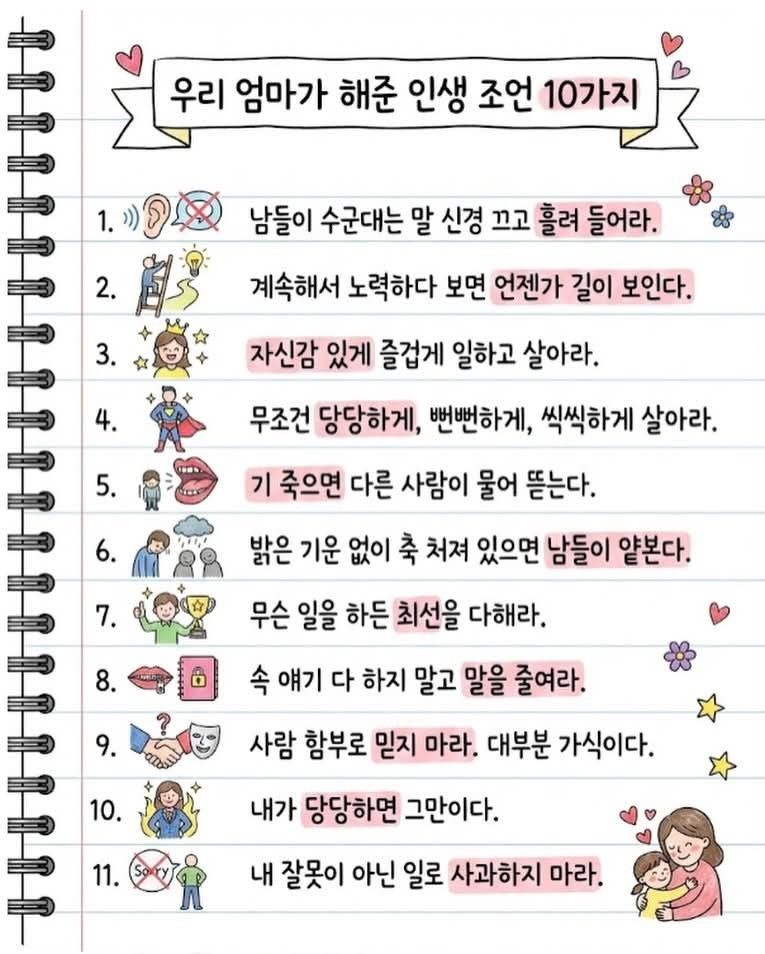 우리 엄마가 해준 인생 조언 10가지
1. 남들이 수군대는 말 신경 끄고 흘려 들어라.
2. 계속해서 노력하다 보면 언젠가 길이 보인다.
3. 자신감 있게 즐겁게 일하고 살아라.
4. 무조건 당당하게, 뻔뻔하게, 씩씩하게 살아라.
5. 기 죽으면 다른 사람이 물어 뜯는다.
6. 밝은 기운 없이 축 처져 있으면 남들이 얕본다.
7. 무슨 일을 하든 최선을 다해라.
8. 속 얘기 다 하지 말고 말을 줄여라.
?
9. 사람 함부로 믿지 마라. 대부분 가식이다.
10. 내가 당당하면 그만이다.
11. Sorry 내 잘못이 아닌 일로 사과하지 마라.